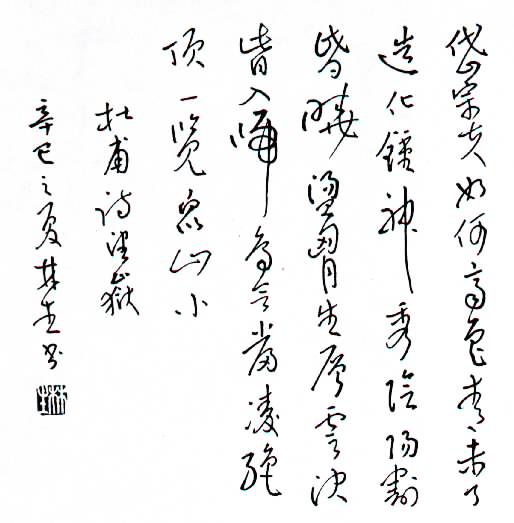 岱宗夫如何齊魯青未了
造化鍾神秀陰陽割
昏曉盪胷生層雲決
眥入歸鳥會當凌絕
頂一覽眾山小
杜甫詩望嶽
辛巳之夏書